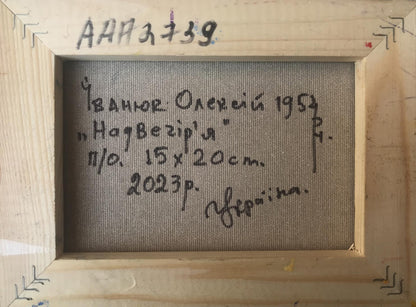 ААА3739
Іванюк Олексій 1954 р.н.
„Надвечір'я"
п/о. 15 х 20 cm.
2023р.
Україна.